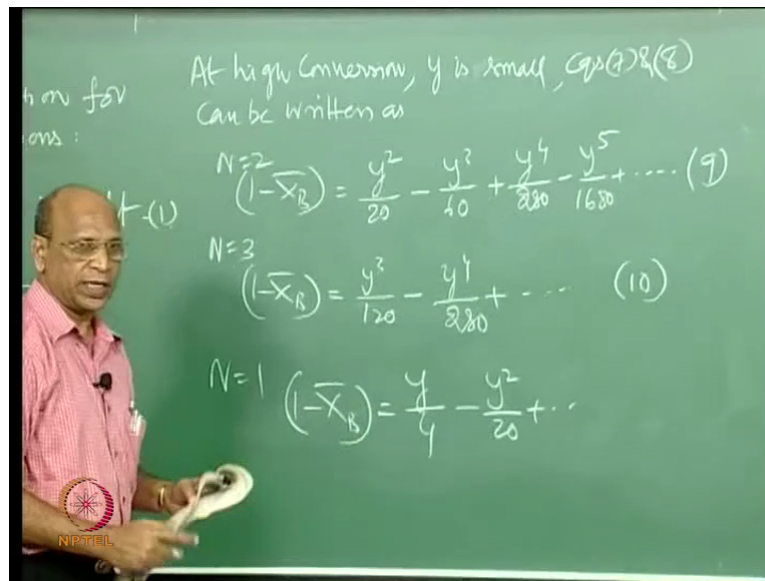 At high Conversion, y is small, eqs(7)&(8)
can be written as
N=2
(1-X̄_B) = y²/20 - y³/60 + y⁴/280 - y⁵/1680 + ···· (9)
N=3
(1-X̄_B) = y³/120 - y⁴/280 + ···· (10)
N=1 (1-X̄_B) = y/4 - y²/20 + ···
ons:
(1)
NPTEL